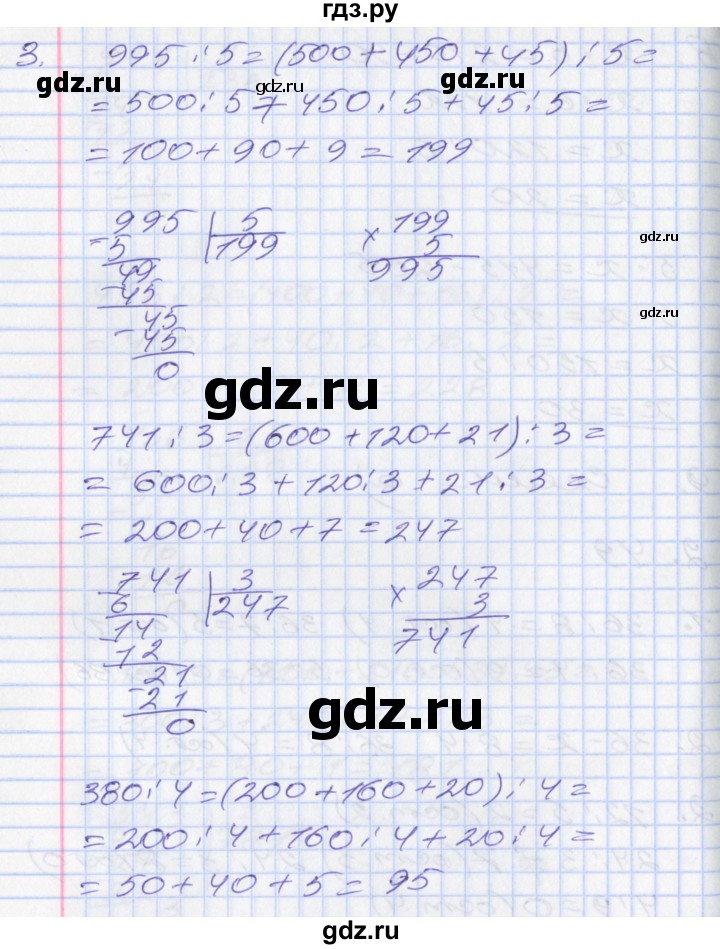 гдз.ру
3. 995 : 5 = (500 + 450 + 45) : 5 =
gdz.ru gdz.ru gdz.ru
= 500 : 5 + 450 : 5 + 45 : 5 =
= 100 + 90 + 9 = 199
995 | 5
- 5 199
49
- 45
45
- 45
0
199
× 5
995
gdz.ru
gdz.ru
gdz.ru
741 : 3 = (600 + 120 + 21) : 3 =
= 600 : 3 + 120 : 3 + 21 : 3 =
= 200 + 40 + 7 = 247
741 | 3
- 6 247
14
- 12
21
- 21
0
247
× 3
741
gdz.ru
380 : 4 = (200 + 160 + 20) : 4 =
= 200 : 4 + 160 : 4 + 20 : 4 =
= 50 + 40 + 5 = 95